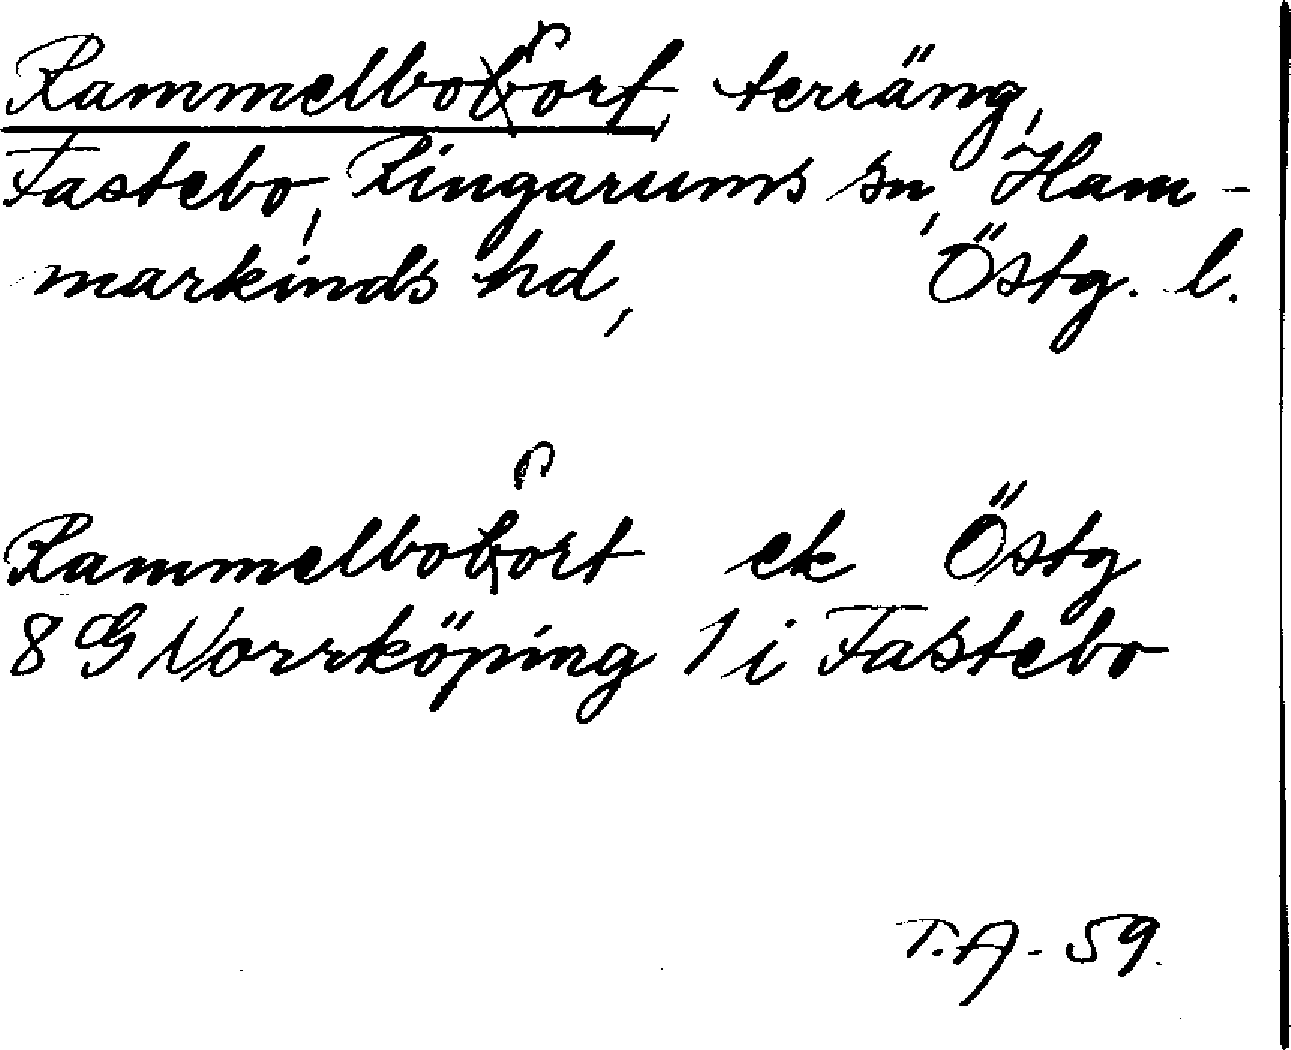 Rammelbobort, terräng,
Fastebo, Ringarums sn, Ham-
markinds hd, Östg. l.
Rammelbobort ek Östg
8 G Norrköping 1 i Fastebo
T.A. - 59.